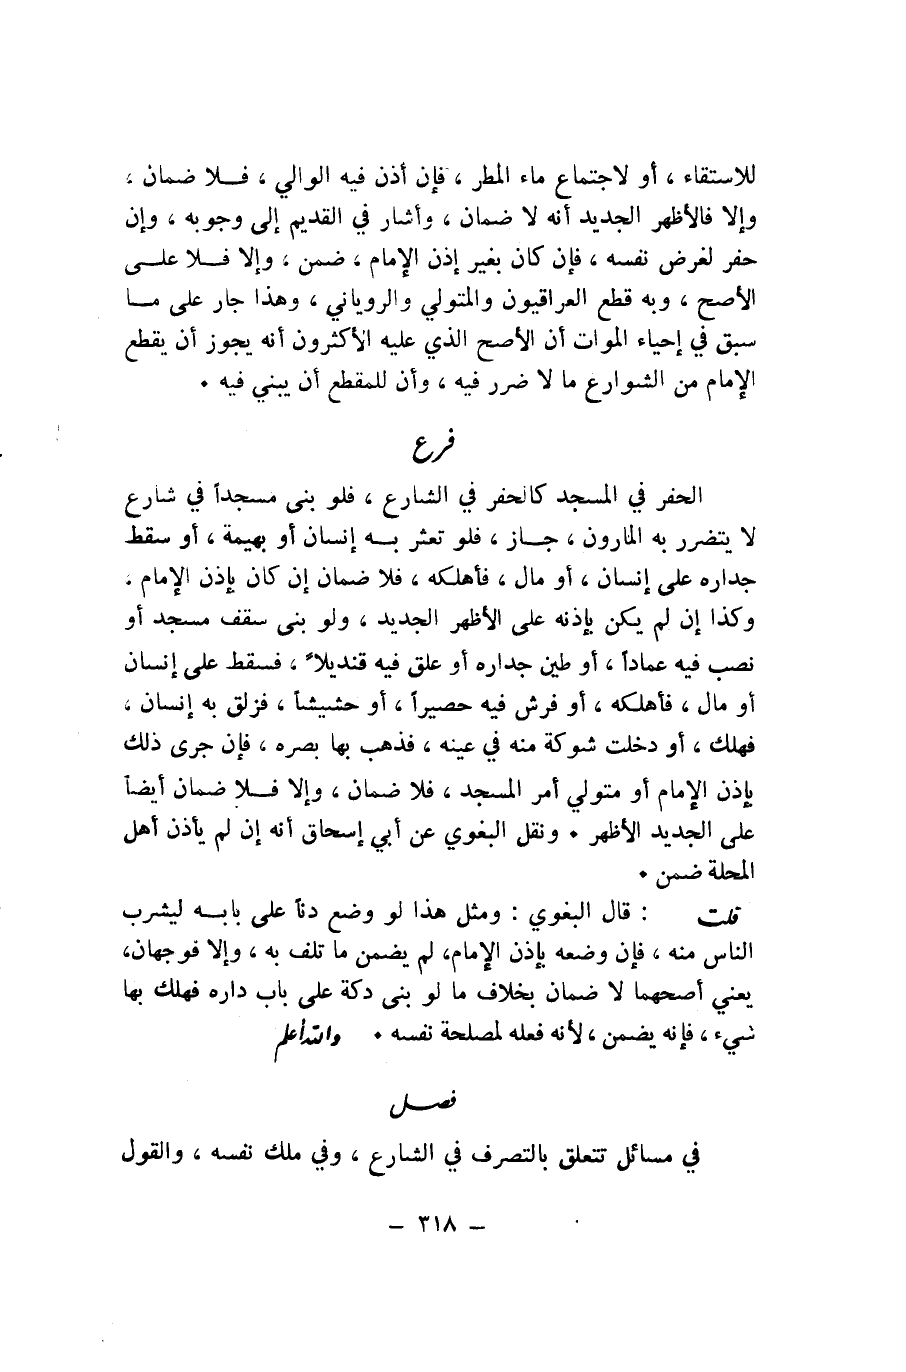 للاستقاء ، أو لاجتماع ماء المطر ، فإن أذن فيه الوالي ، فــلا ضمان ،
وإلا فالأظهر الجديد أنه لا ضمان ، وأشار في القديم إلى وجوبه ، وإن
حفر لغرض نفسه ، فإن كان بغير إذن الإمام ، ضمن ، وإلا فــلا علــى
الأصح ، وبه قطع العراقيون والمتولي والروياني ، وهذا جار على مــا
سبق في إحياء الموات أن الأصح الذي عليه الأكثرون أنه يجوز أن يقطع
الإمام من الشوارع ما لا ضرر فيه ، وأن للمقطع أن يبني فيه .
فرع
الحفر في المسجد كالحفر في الشارع ، فلو بنى مسجداً في شارع
لا يتضرر به المارون ، جــاز ، فلو تعثر بــه إنسان أو بهيمة ، أو سقط
جداره على إنسان ، أو مال ، فأهلكه ، فلا ضمان إن كان بإذن الإمام .
وكذا إن لم يكن بإذنه على الأظهر الجديد ، ولو بنى سقف مسجد أو
نصب فيه عماداً ، أو طين جداره أو علق فيه قنديلاً ، فسقط على إنسان
أو مال ، فأهلكه ، أو فرش فيه حصيراً ، أو حشيشاً ، فزلق به إنسان ،
فهلك ، أو دخلت شوكة منه في عينه ، فذهب بها بصره ، فإن جرى ذلك
بإذن الإمام أو متولي أمر المسجد ، فلا ضمان ، وإلا فــلا ضمان أيضاً
على الجديد الأظهر . ونقل البغوي عن أبي إسحاق أنه إن لم يأذن أهل
المحلة ضمن .
قلت : قال البغوي : ومثل هذا لو وضع دناً على بابــه ليشرب
الناس منه ، فإن وضعه بإذن الإمام، لم يضمن ما تلف به ، وإلا فوجهان،
يعني أصحهما لا ضمان بخلاف ما لو بنى دكة على باب داره فهلك بها
شيء ، فإنه يضمن ، لأنه فعله لمصلحة نفسه . والله أعلم
فصــل
في مسائل تتعلق بالتصرف في الشارع ، وفي ملك نفسه ، والقول
– ٣١٨ –